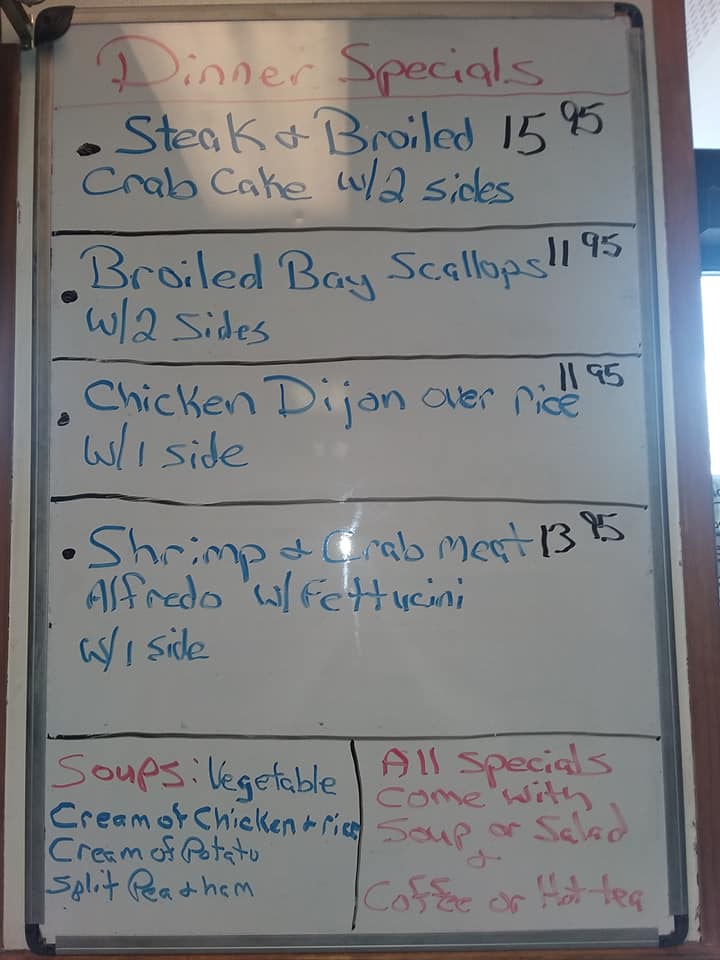 Dinner Specials
• Steak & Broiled 15 95
Crab Cake w/2 sides
• Broiled Bay Scallops 11 95
w/2 sides
• Chicken Dijon over rice 11 95
w/1 side
• Shrimp & Crab meat 13 95
Alfredo w/ Fettucini
w/1 side
Soups: Vegetable
Cream of Chicken & rice
Cream of Potato
Split Pea & ham
All specials
come with
Soup or Salad
&
Coffee or Hot tea